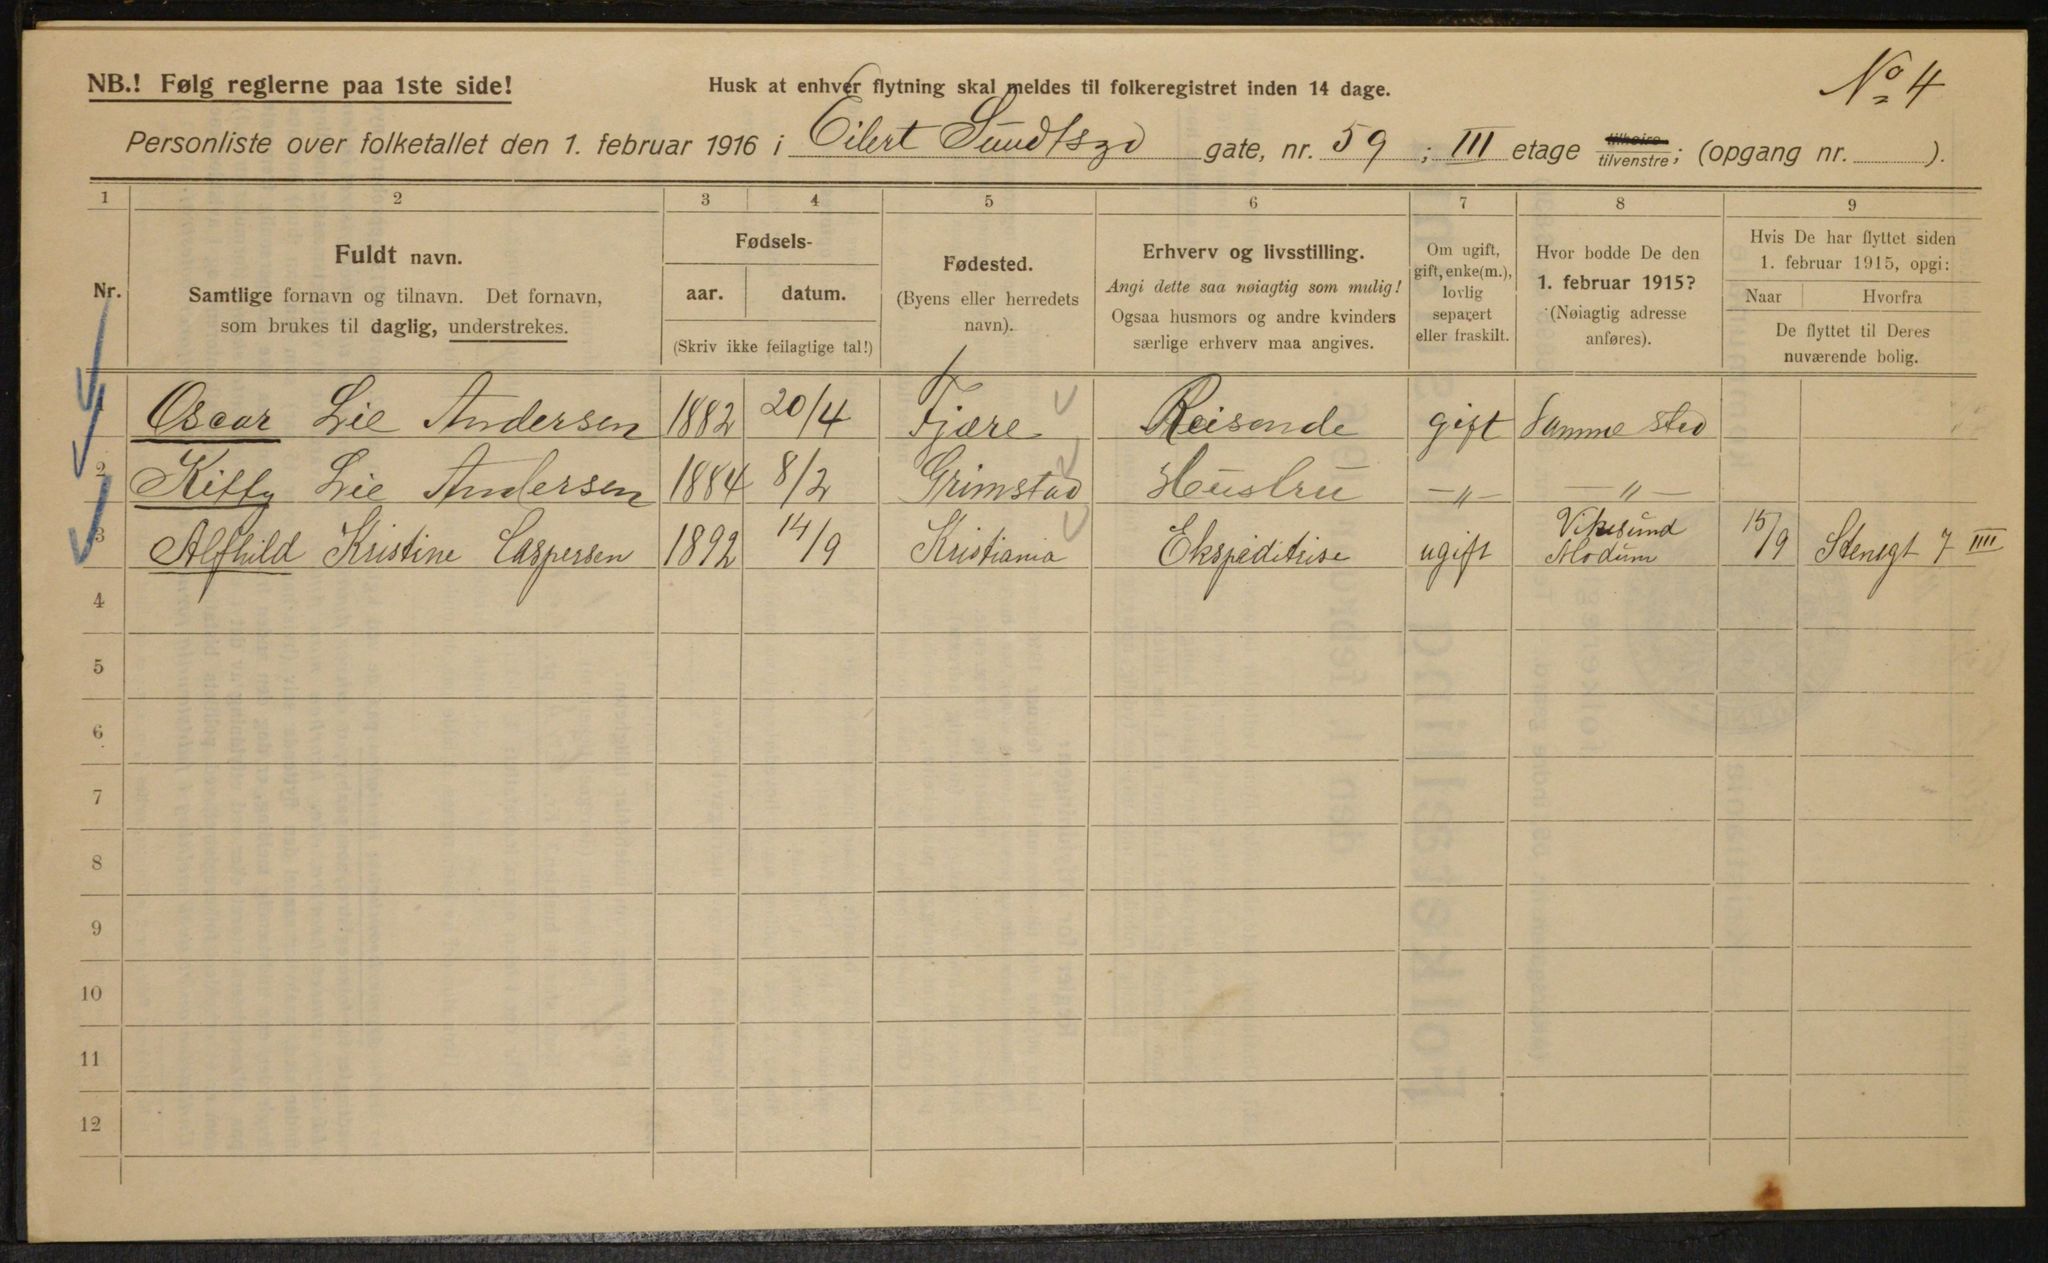 No 4
NB.! Følg reglerne paa 1ste side!
Husk at enhver flytning skal meldes til folkeregistret inden 14 dage.
Personliste over folketallet den 1. februar 1916 i Eilert Sundtsgd gate, nr. 59; III etage tilhøire tilvenstre; (opgang nr. ).
1 2 3 4 5 6 7 8 9
Nr.
Fuldt navn.
Samtlige fornavn og tilnavn. Det fornavn,
som brukes til daglig, understrekes.
Fødsels-
aar. datum.
(Skriv ikke feilagtige tal!)
Fødested.
(Byens eller herredets
navn).
Erhverv og livsstilling.
Angi dette saa nøiagtig som mulig!
Ogsaa husmors og andre kvinders
særlige erhverv maa angives.
Om ugift,
gift, enke(m.),
lovlig
separert
eller fraskilt.
Hvor bodde De den
1. februar 1915?
(Nøiagtig adresse
anføres).
Hvis De har flyttet siden
1. februar 1915, opgi:
Naar Hvorfra
De flyttet til Deres
nuværende bolig.
1 Oscar Lie Andersen 1882 20/4 Fjære Reisende gift Samme sted
2 Kitty Lie Andersen 1884 8/2 Grimstad Hustru —"— —"—
3 Alfhild Kristine Caspersen 1892 14/9 Kristiania Ekspeditrise ugift Vikesund Modum 15/9 Stensgt 7 IIII
4
5
6
7
8
9
10
11
12